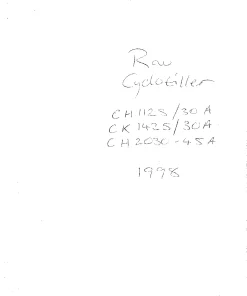 Rau
Cyclotiller
CH1125/30A
CK1425/30A
CH2030-45A
1998